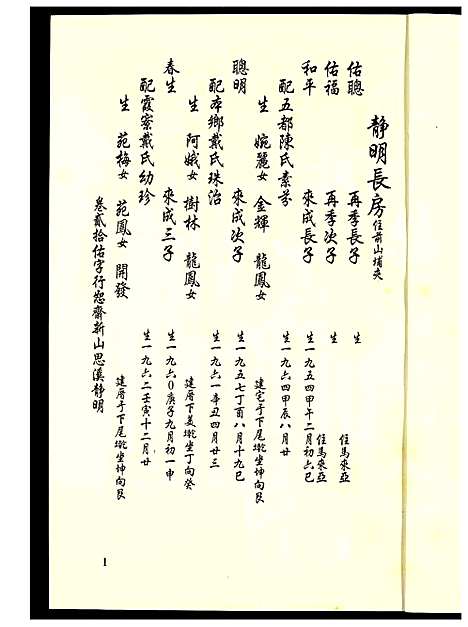 靜明長房 住前山埔夾
佑聰 再季長子 生 住馬來亞
佑福 再季次子 生 住馬來亞
和平 來成長子 生一九五四甲午二月初六巳
配五都陳氏素芬 生一九六四甲辰八月廿
生 婉麗女 金輝 龍鳳女 建宅于下尾墘坐坤向艮
聰明 來成次子 生一九五七丁酉八月十九巳
配本鄉戴氏珠治 生一九六一辛丑四月廿三
生 阿娥女 樹林 龍鳳女 建厝下美墘坐丁向癸
春生 來成三子 生一九六0庚子九月初一申
配霞寮戴氏幼珍 生一九六二壬寅十二月廿
生 苑梅女 苑鳳女 開發 建厝于下尾墘坐坤向艮
卷貳拾佑字行恕齋新山思溪靜明
1